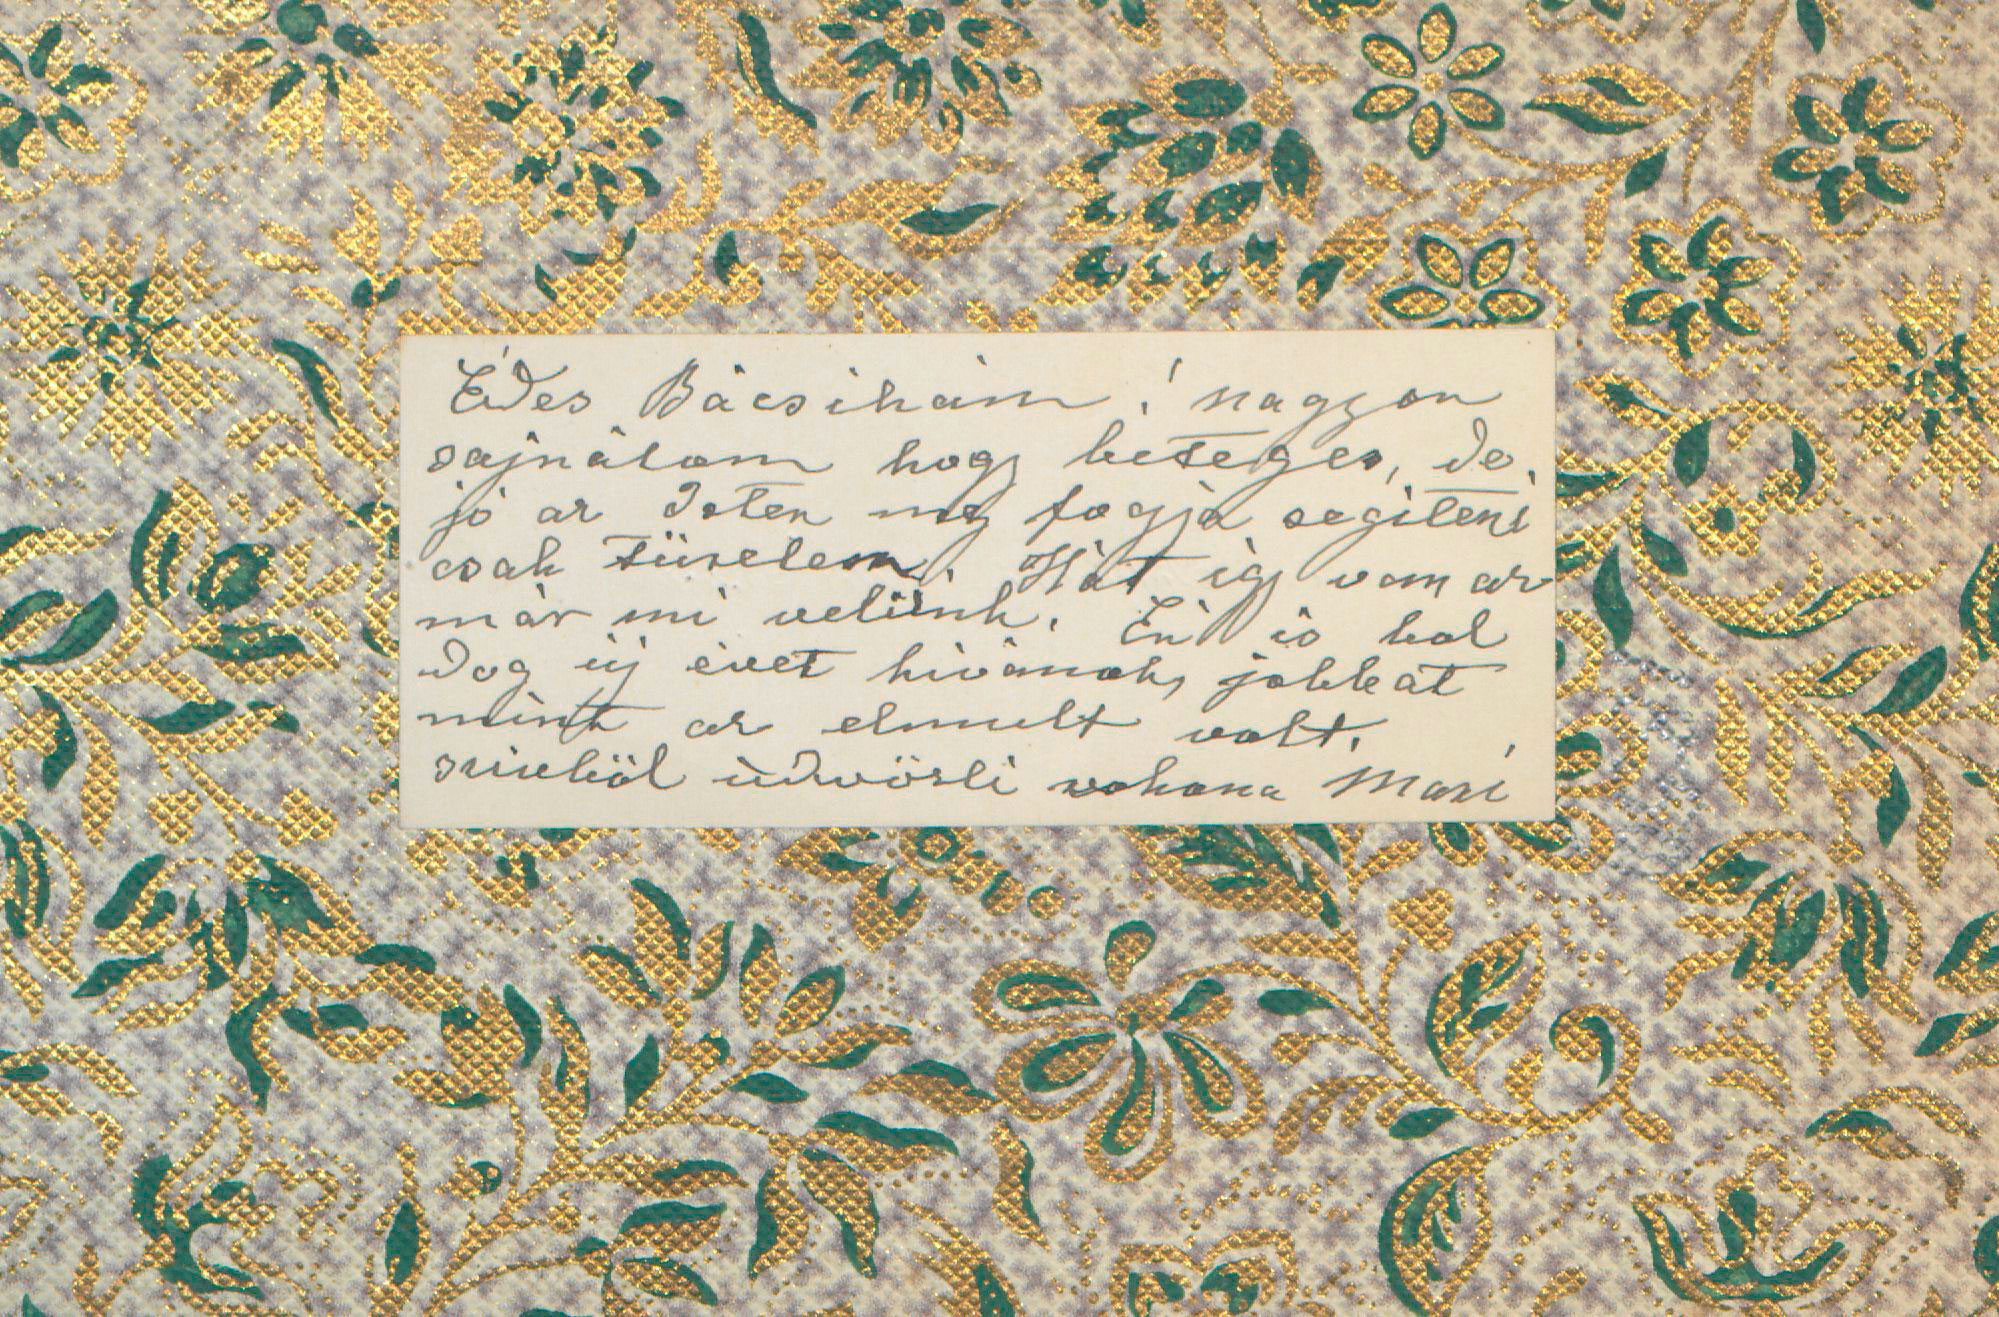 Édes Bácsikám! nagyon
sajnálom hogy beteges, de
jó az Isten meg fogja segiteni
csak türelem. Hát igy van az
már mi velünk. Én is bol
dog új évet kivánok, jobbat
mint az elmult volt.
szivböl üdvözli rokona Mari